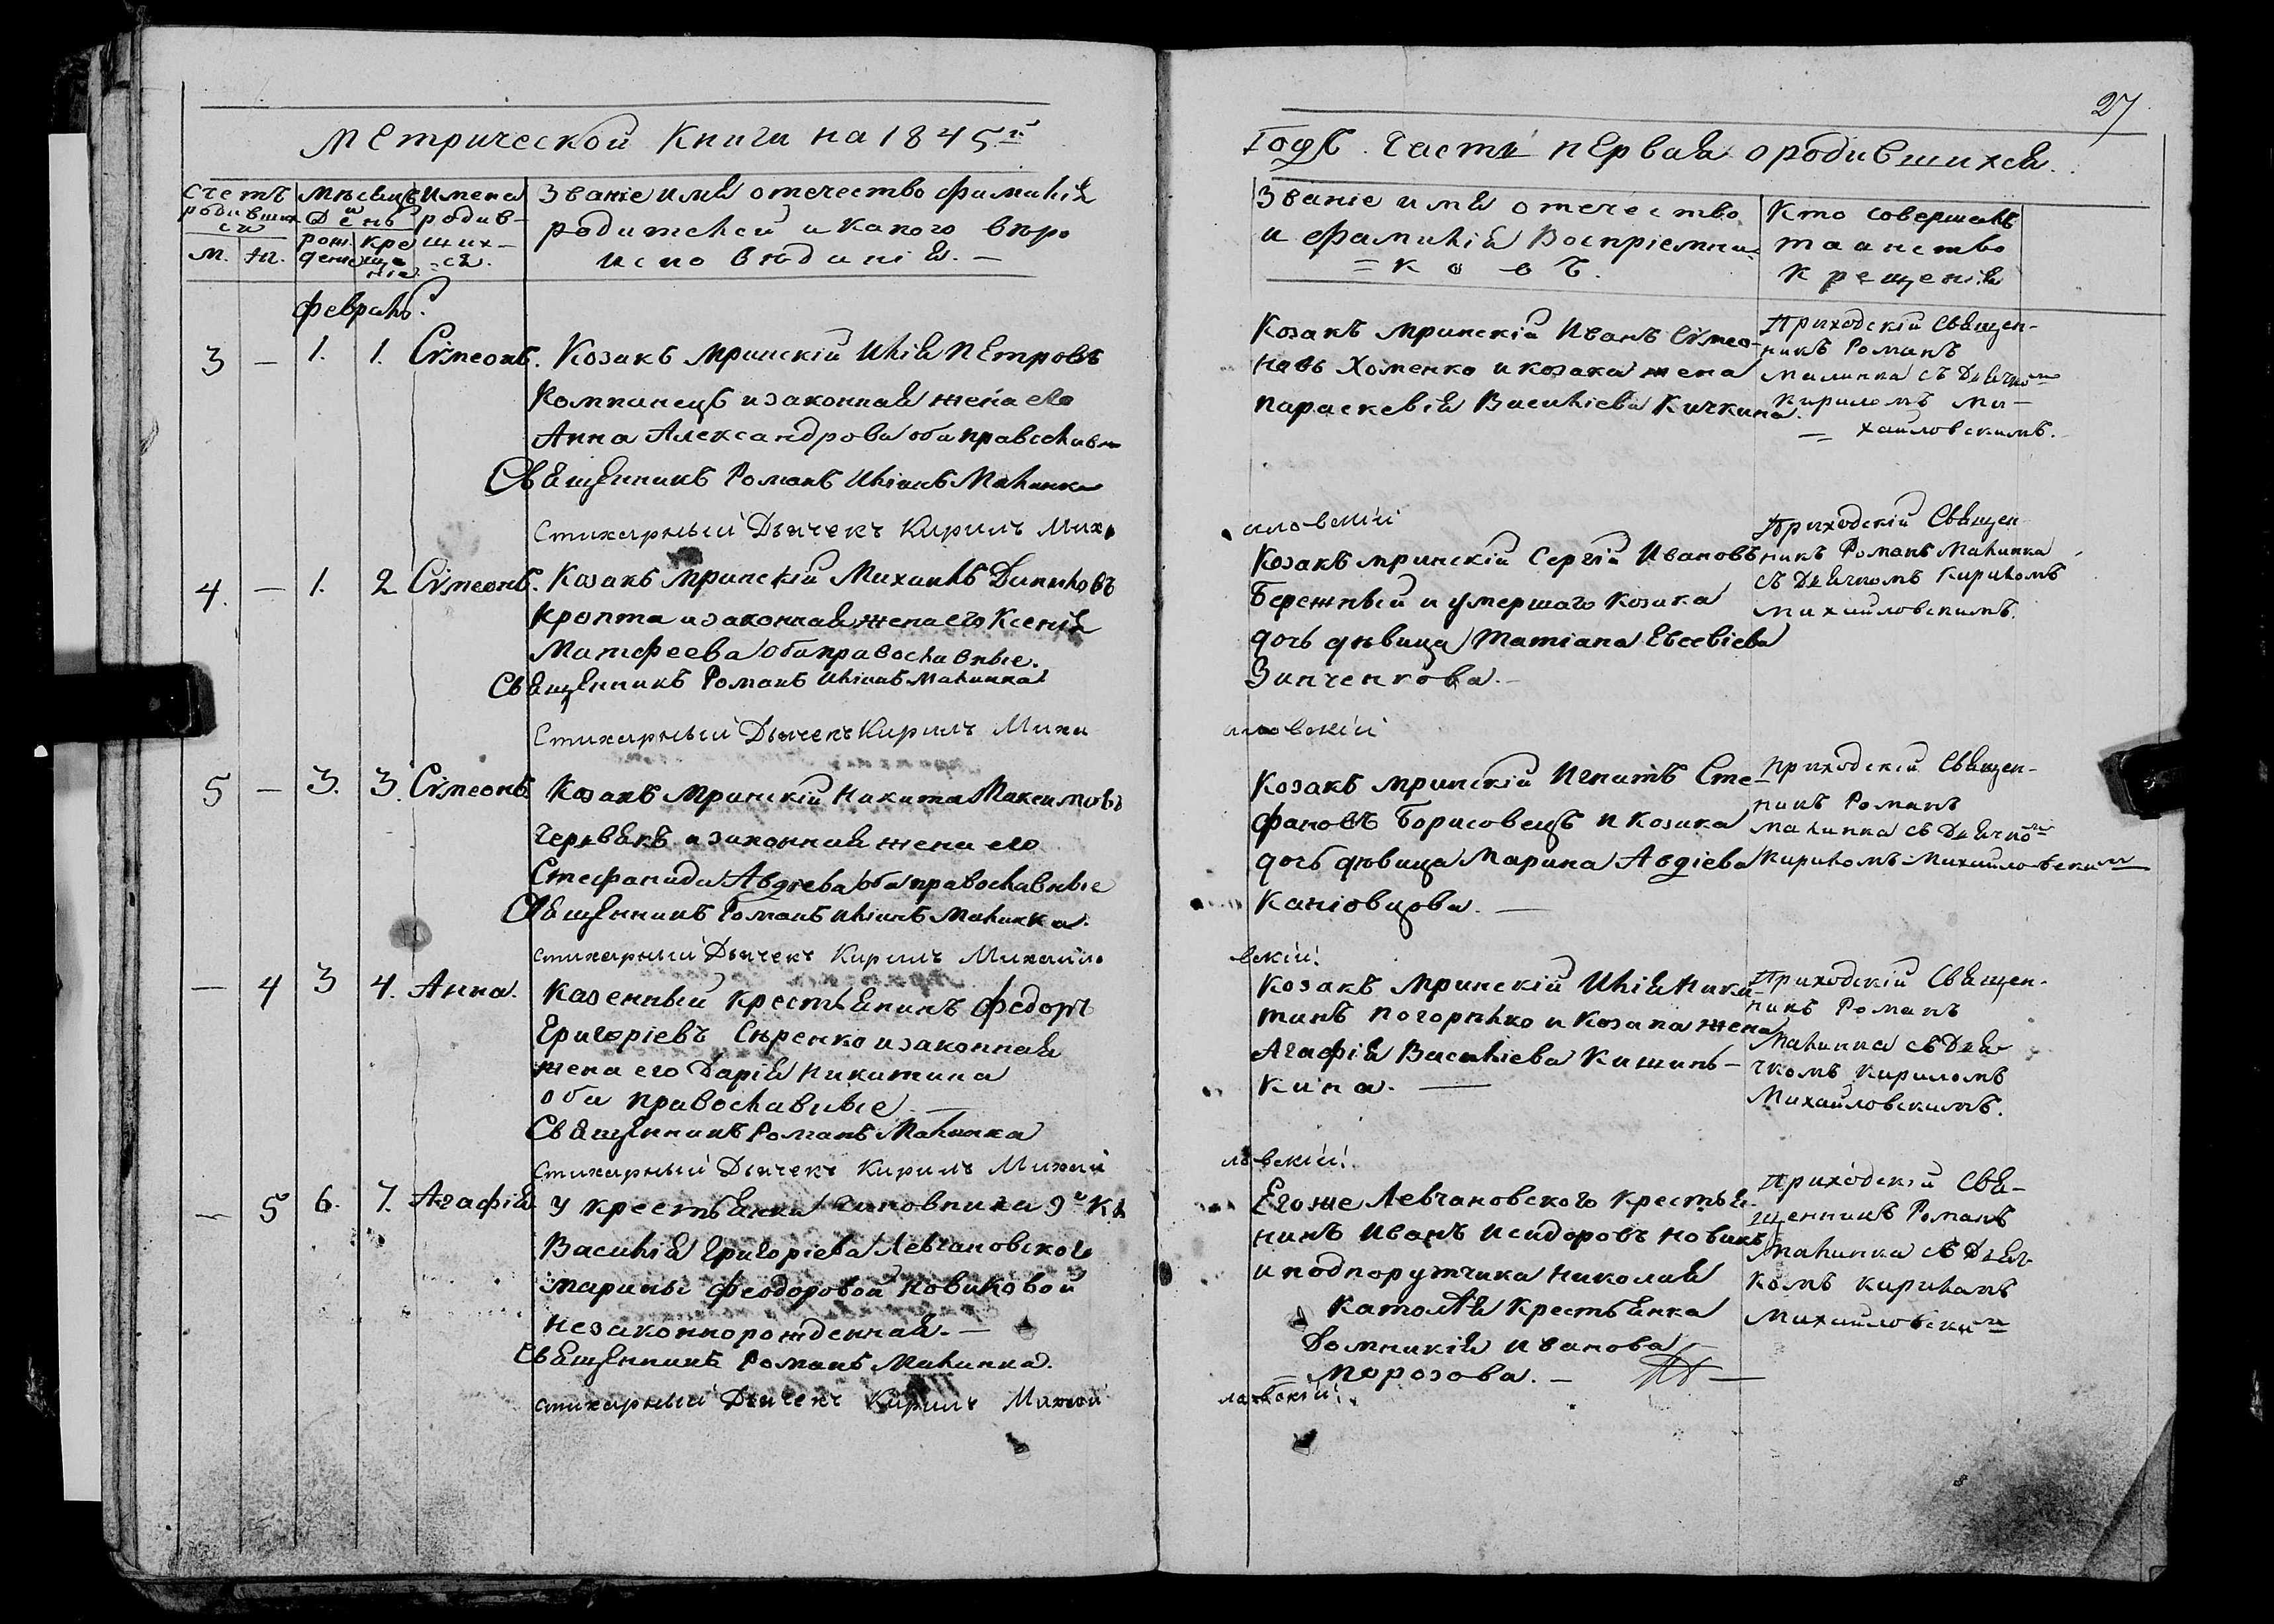 27
Метрической Книги на 1845й
Годъ. Часть первая о родившихся.
Счетъ родившихся
М. Ж.
Мѣсяцъ и День
рожденія крещенія
Имена родившихся.
Званіе имя отечество фамилія
родителей и какого вѣро
исповѣданія. —
Званіе имя отечество
и фамилія Воспріемни=
=ковъ.
Кто совершалъ
таинство
крещенія
февраль.
3 — 1. 1. Сѵмеонъ.
Козакъ мринскій Илія Петровъ
Компанецъ и законная жена его
Анна Александрова оба православны
Священникъ Романъ Иліинъ Малинка
Стихарный Дьячекъ Кирилъ Миха
иловскій
Козакъ мринскій Иванъ Сѵмео-
новъ Хоменко и козака жена
параскевія Василіева Кичкина.
Приходскій Священ-
никъ Романъ
Малинка съ Дьячкомъ
Кириломъ Ми-
хаиловскимъ.
4. — 1. 2 Сѵмеонъ.
Козакъ мринскій Михаилъ Даниловъ
Кропта и законная жена его Ксенія
Матфеева оба православные.
Священникъ Романъ Иліинъ Малинка
Стихарный Дьячекъ Кирилъ Миха
иловскій
Козакъ мринскій Сергій Ивановъ
Бережный и умершаго козака
дочь дѣвица Татіана Евсевіева
Зинченкова. —
Приходскій Священ
никъ Романъ Малинка
съ Дьячкомъ Кириломъ
Михаиловскимъ.
5 — 3. 3. Сѵмеонъ.
Козакъ мринскій Никита Максимовъ
Червякъ и законная жена его
Стефанида Авдѣева оба православные
Священникъ Романъ Иліинъ Малинка.
стихарный Дьячекъ Кирилъ Михаило
вскій
Козакъ мринскій Игнатъ Сте-
фановъ Борисовецъ и козака
дочь дѣвица Марина Авдіева
Каніовцова. —
Приходскій Священ-
никъ Романъ
Малинка съ Дьячкомъ
Кириломъ Михаиловским
— 4 3 4. Анна.
Казенный крестьянинъ Федоръ
Григоріевъ Сѣренко и законная
жена его Дарія Никитина
оба православные —
Священникъ Романъ Малинка
Стихарный Дьячекъ Кирилъ Михаи
ловскій
Козакъ мринскій Илія Ники-
тинъ Погорѣлко и козака жена
Агафія Василіева Кишин-
кина. —
Приходскій Священ-
никъ Романъ
Малинка съ Дья
чкомъ Кириломъ
Михаиловскимъ.
— 5 6. 7. Агафія
У крестьянки чиновника 9й Кл
Василія Григоріева Левчановского
Марины Феодоровой Новиковой
незаконнорожденная. —
Священникъ Романъ Малинка.
стихарный Дьячекъ Кирилъ Михаи
ловскій
Его же Левчановского крестья-
нинъ Иванъ Исидоровъ Новикъ
и подпоручика Николая
крестьянка
Домникія Иванова
Морозова. —
Приходскій Свя-
щенникъ Романъ
Малинка съ Дьяч
комъ Кириломъ
Михаиловским